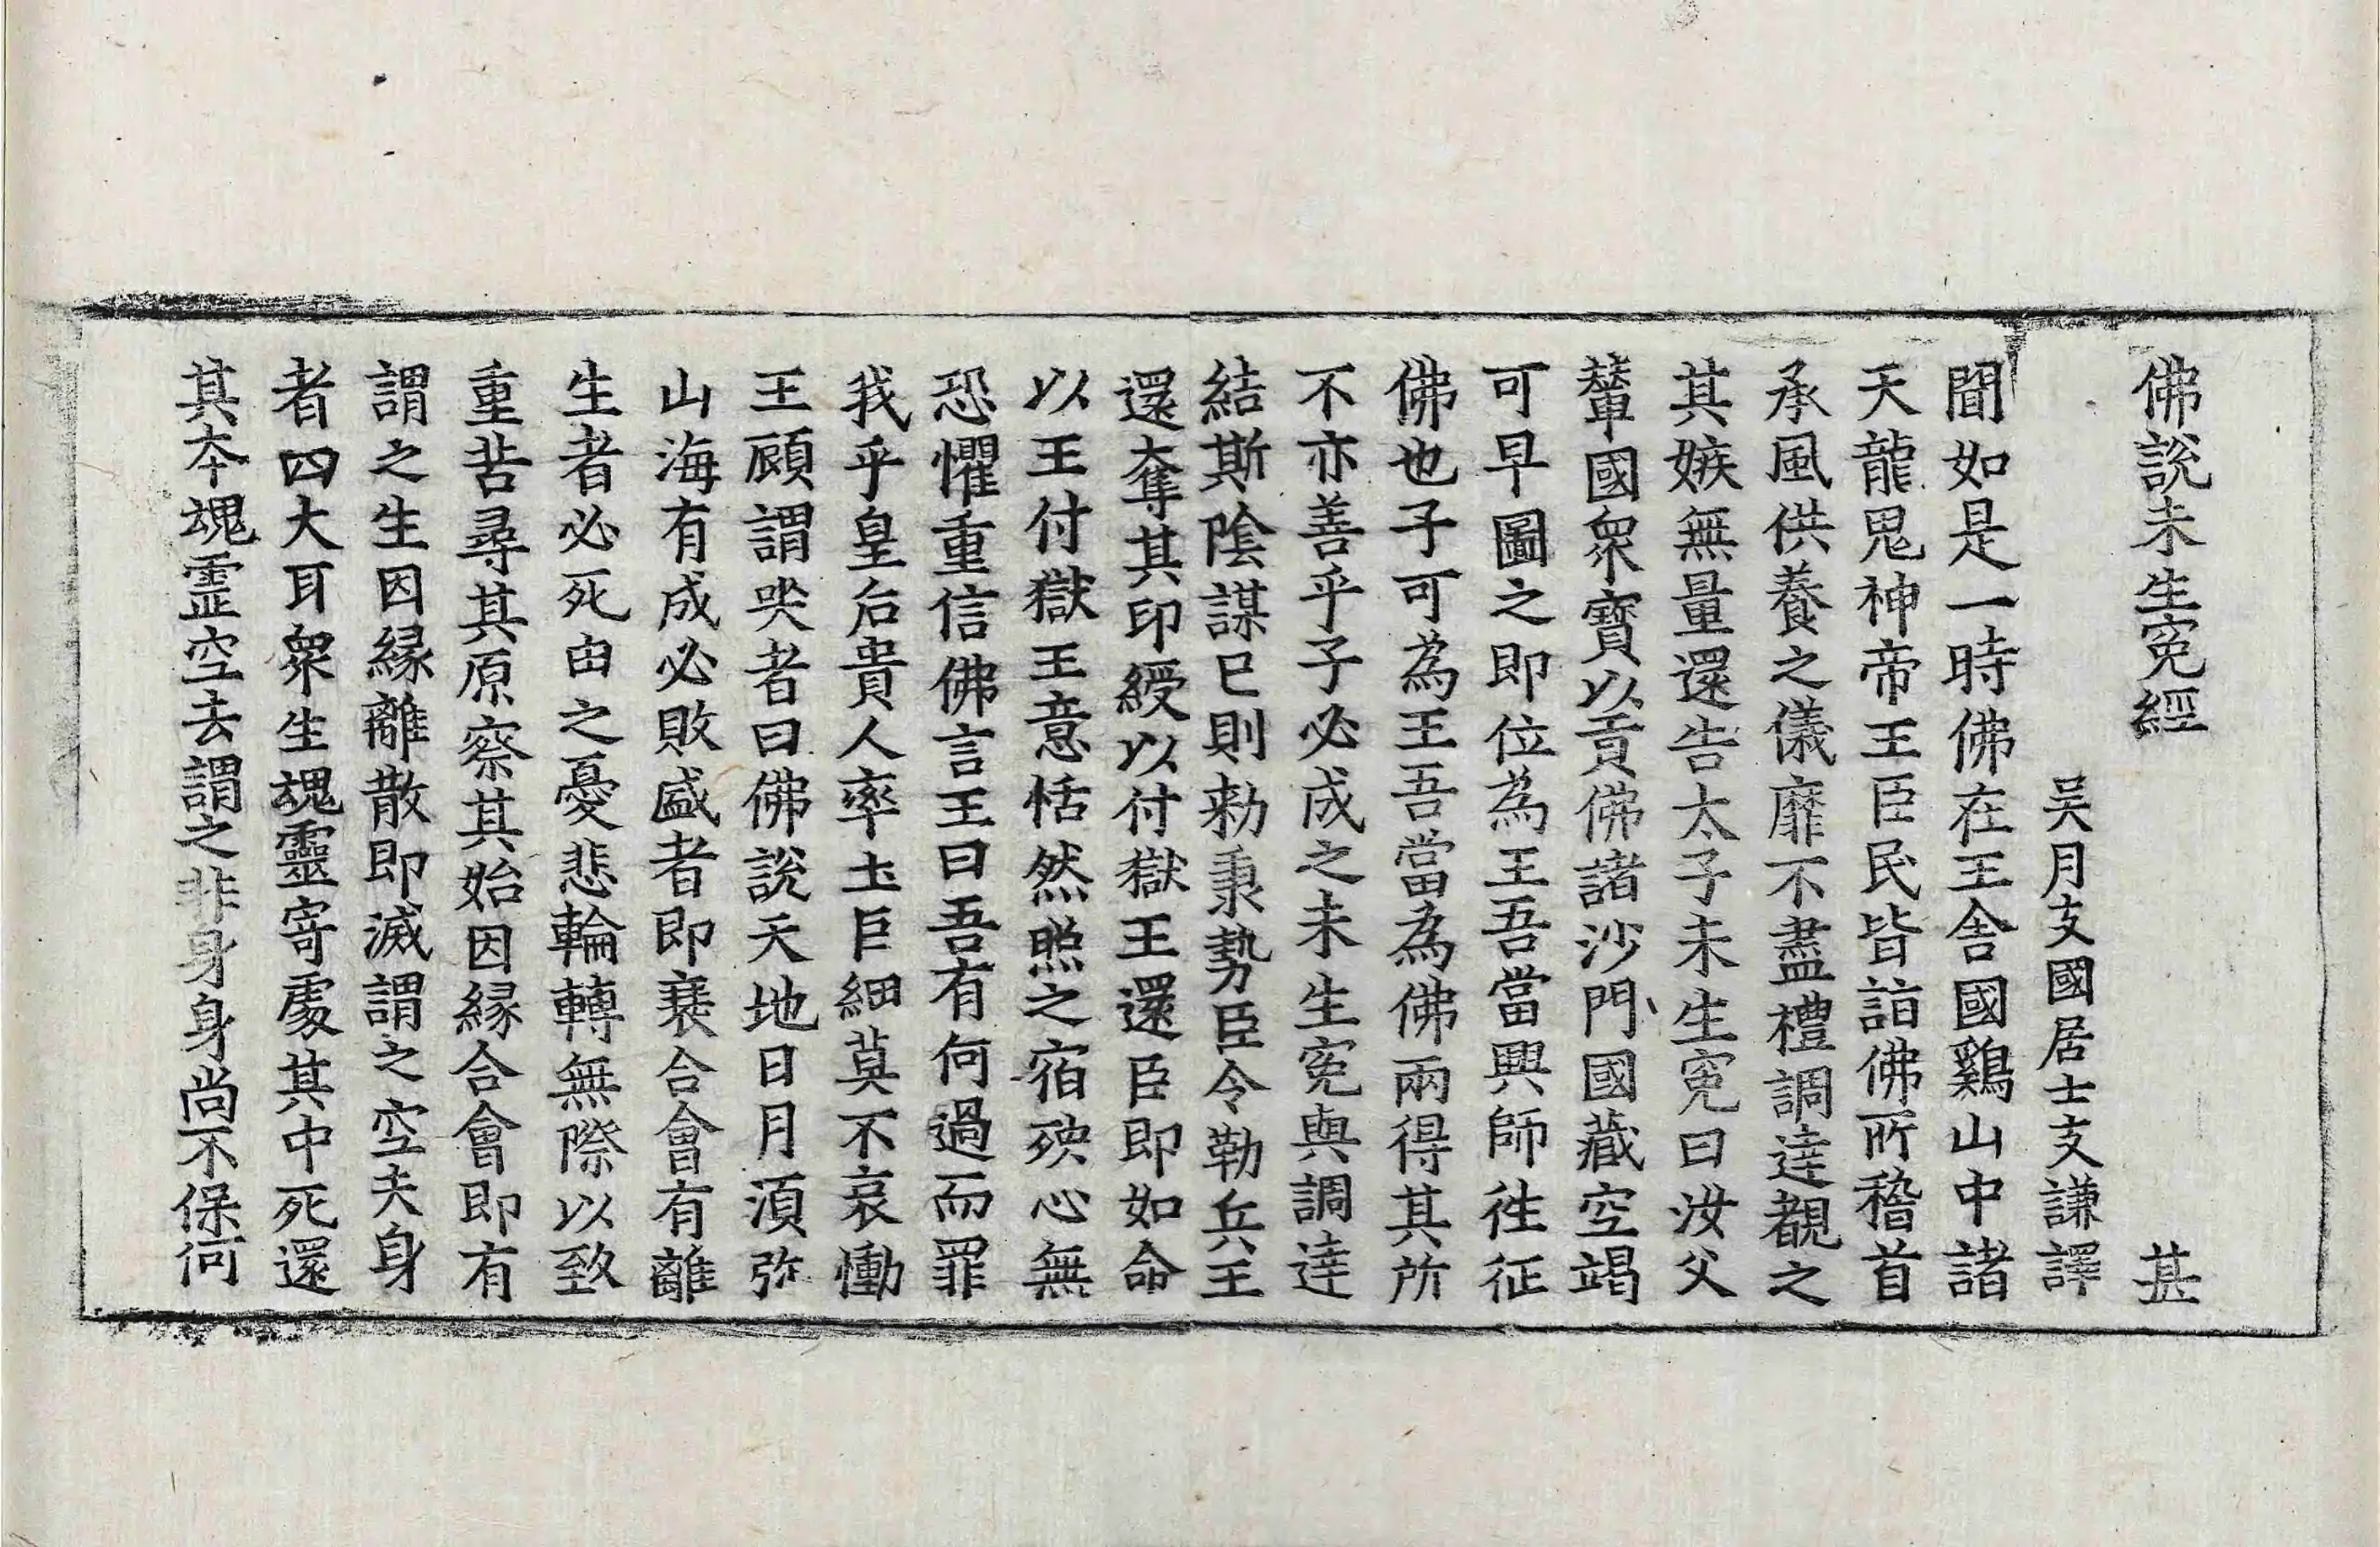 佛說未生寃經 甚
吳月支國居士支謙譯
聞如是一時佛在王舍國鷄山中諸
天龍鬼神帝王臣民皆詣佛所稽首
承風供養之儀靡不盡禮調達覩之
其嫉無量還告太子未生寃曰汝父
輦國衆寶以貢佛諸沙門國藏空竭
可早圖之即位為王吾當興師徃征
佛也子可為王吾當為佛兩得其所
不亦善乎子必成之未生寃與調達
結斯陰謀已則勑秉勢臣令勒兵王
還奪其印綬以付獄王還臣即如命
以王付獄王意恬然照之宿殃心無
恐懼重信佛言王曰吾有何過而罪
我乎皇后貴人率土巨細莫不哀慟
王顧謂哭者曰佛說天地日月湏弥
山海有成必敗盛者即衰合會有離
生者必死由之憂悲輪轉無際以致
重苦尋其原察其始因緣合會即有
謂之生因緣離散即滅謂之空夫身
者四大耳衆生魂靈寄處其中死還
其本魂靈空去謂之非身身尚不保何